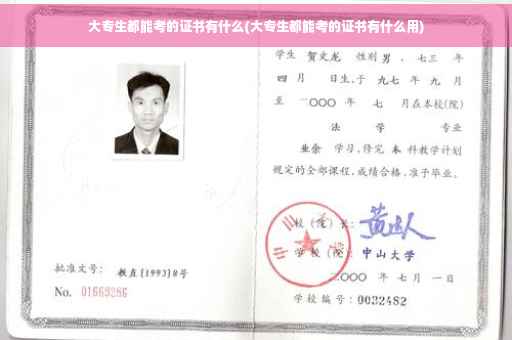 大专生都能考的证书有什么(大专生都能考的证书有什么用)
学生 贺文龙 性别 男 、七三 年
四 月 日生,于 九七 年 九 月
至 二〇〇〇 年 七 月在本校(院)
法 学 专业
业余 学习,修完 本 科教学计划
规定的全部课程,成绩合格,准予毕业。
校(院)长:
学校(院): 中山大学
批准文号: 教直[1993]8号
二〇〇〇 年 七 月 一 日
No. 01669286
学校编号: 0032482